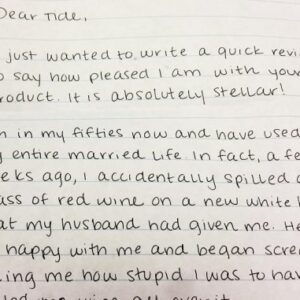 Dear Tide,
just wanted to write a quick revi
o say how pleased I am with you
roduct. It is absolutely stellar!
m in my fifties now and have used
entire married life. In fact, a fe
eks ago, I accidentally spilled
ass of red wine on a new white
at my husband had given me. He
happy with me and began scre
ing me how stupid I was to hav